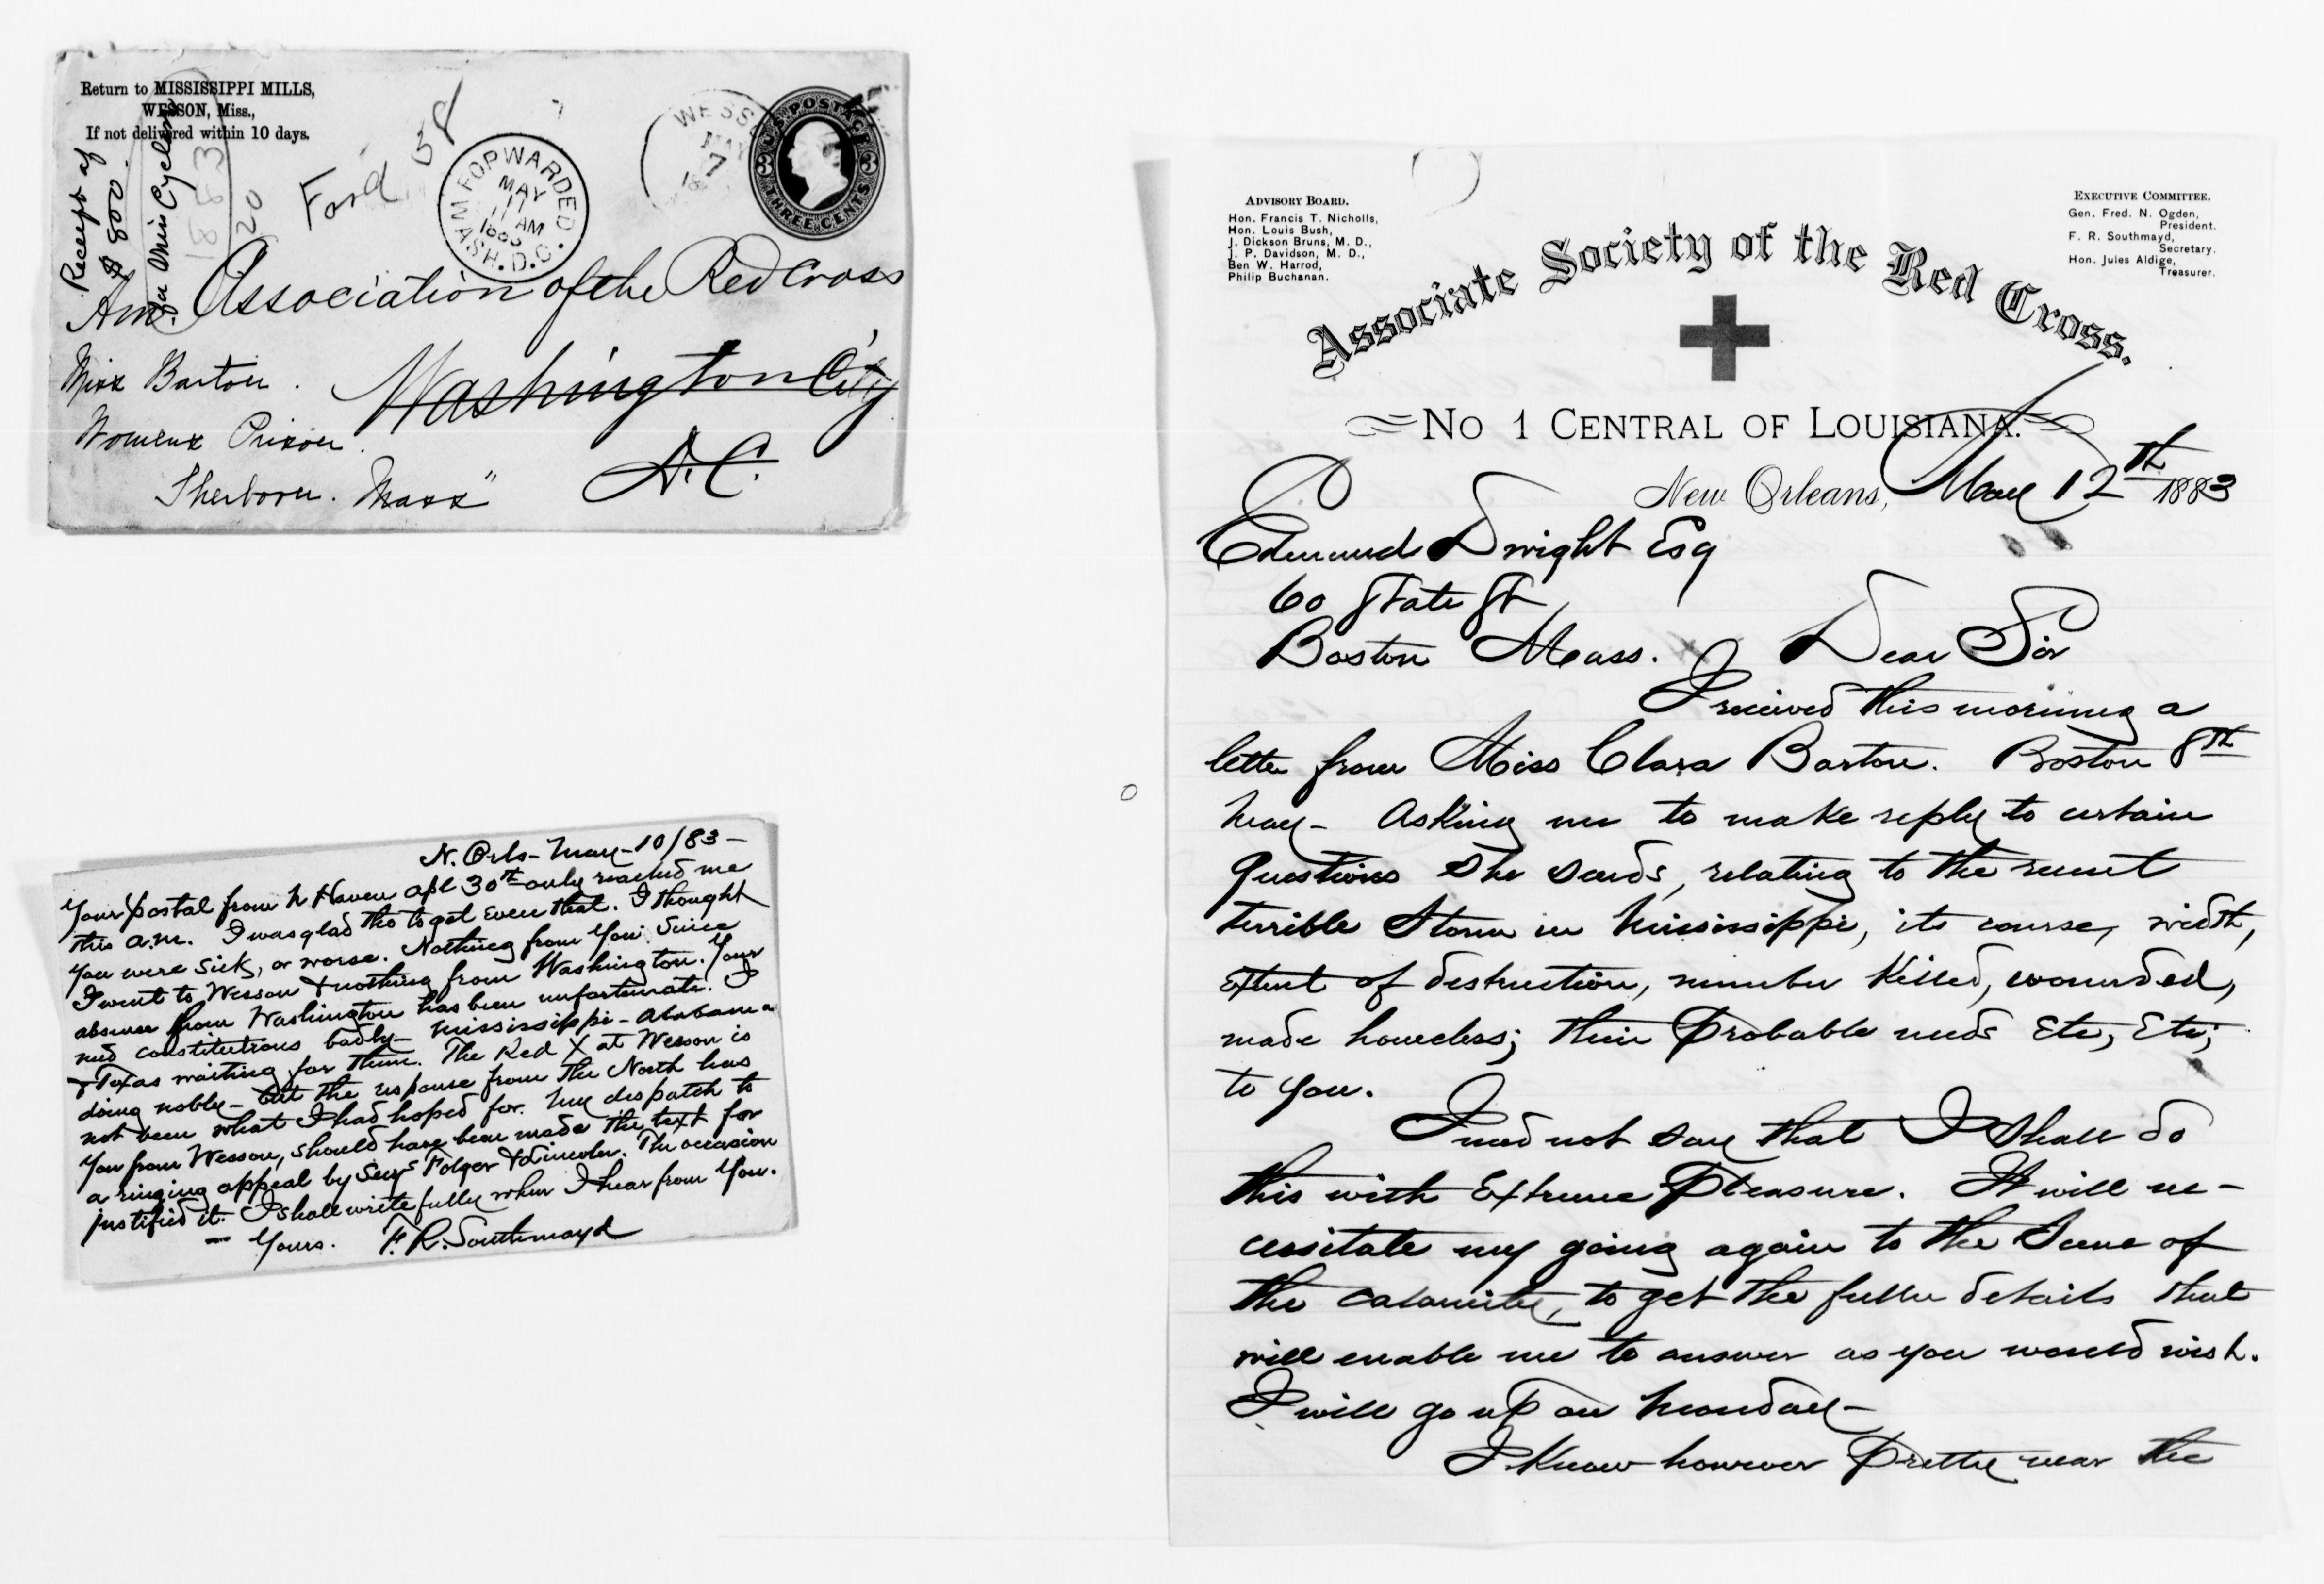 Return to MISSISSIPPI MILLS,
WESSON, Miss.,
If not delivered within 10 days.
Receipt of
$800.
Miss Cyclone
1883
Ford
FORWARDED
MAY
11
AM
1883
WASH. D.C.
WESS
MAY
7
U.S. POSTAGE
3 3
THREE CENTS
Am. Association of the Red Cross
Washington City
D.C.
Miss Barton.
Womens Prison
Sherborn. Mass"
N. Orls - May - 10/83 -
Your postal from N Haven apl 30th only reached me
this a.m. I was glad tho to get even that. I thought
you were sick, or worse. Nothing from you since
I went to Wesson & nothing from Washington. Your
absence from Washington has been unfortunate. I
need constitutions badly - Mississippi - Alabama
& Texas waiting for them. The Red X at Wesson is
doing nobly - but the response from the North has
not been what I had hoped for. My despatch to
you from Wesson, should have been made the text for
a ringing appeal by Secys Folger & Lincoln. The occasion
justified it. I shall write fully when I hear from you.
- Yours. F. R. Southmayd
ADVISORY BOARD.
Hon. Francis T. Nicholls,
Hon. Louis Bush,
J. Dickson Bruns, M. D.,
J. P. Davidson, M. D.,
Ben W. Harrod,
Philip Buchanan.
EXECUTIVE COMMITTEE.
Gen. Fred. N. Ogden,
President.
F. R. Southmayd,
Secretary.
Hon. Jules Aldige,
Treasurer.
Associate Society of the Red Cross.
No 1 CENTRAL OF LOUISIANA.
New Orleans, May 12th 1883
Edmund Dwight Esq
60 State St
Boston Mass. Dear Sir
I received this morning a
letter from Miss Clara Barton. Boston 8th
May - Asking me to make reply to certain
questions she sends, relating to the recent
terrible storm in Mississippi, its course, width,
extent of destruction, number killed, wounded,
made homeless; their probable needs Etc, Etc;
to you.
I need not say that I shall do
this with Extreme pleasure. It will ne-
cessitate my going again to the scene of
the calamity, to get the fuller details that
will enable me to answer as you would wish.
I will go up on Monday -
I know however pretty near the